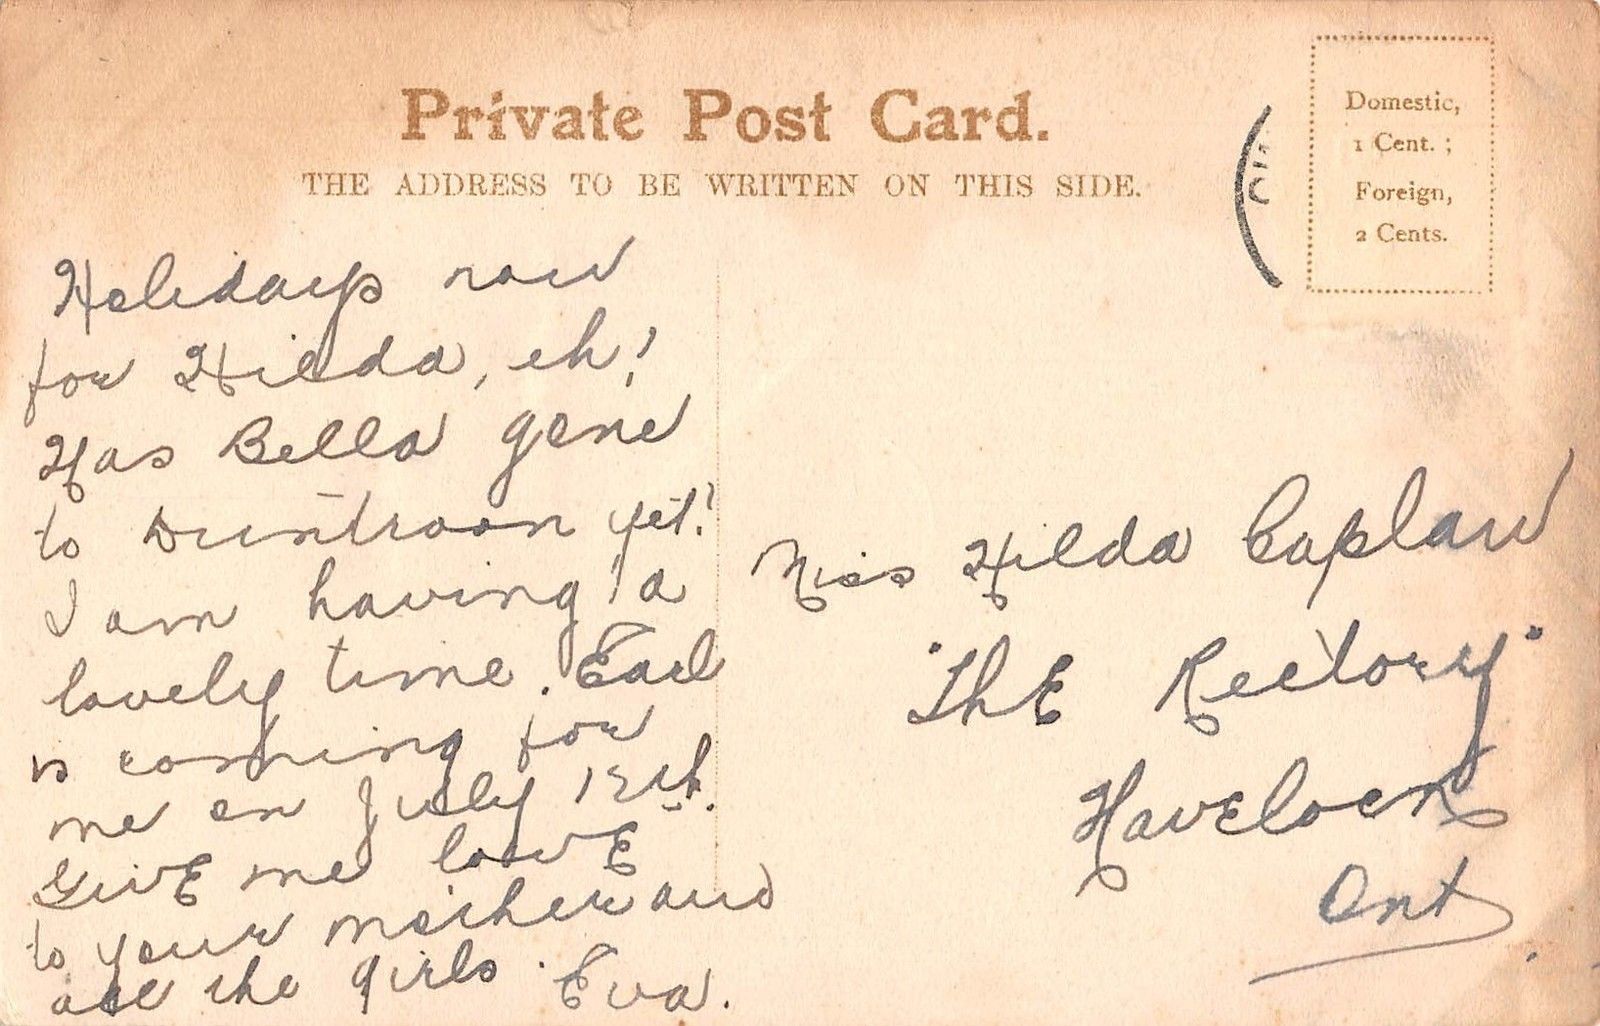 Private Post Card.
THE ADDRESS TO BE WRITTEN ON THIS SIDE.
Domestic,
1 Cent. ;
Foreign,
2 Cents.
Holidays now
for Hilda, eh!
Has Bella gone
to Duntroon yet?
I am having a
lovely time. Earl
is coming for
me on July 12th.
Give me love
to your mother and
all the girls. Eva.
Miss Hilda Caplan
"The Rectory"
Havelock
Ont